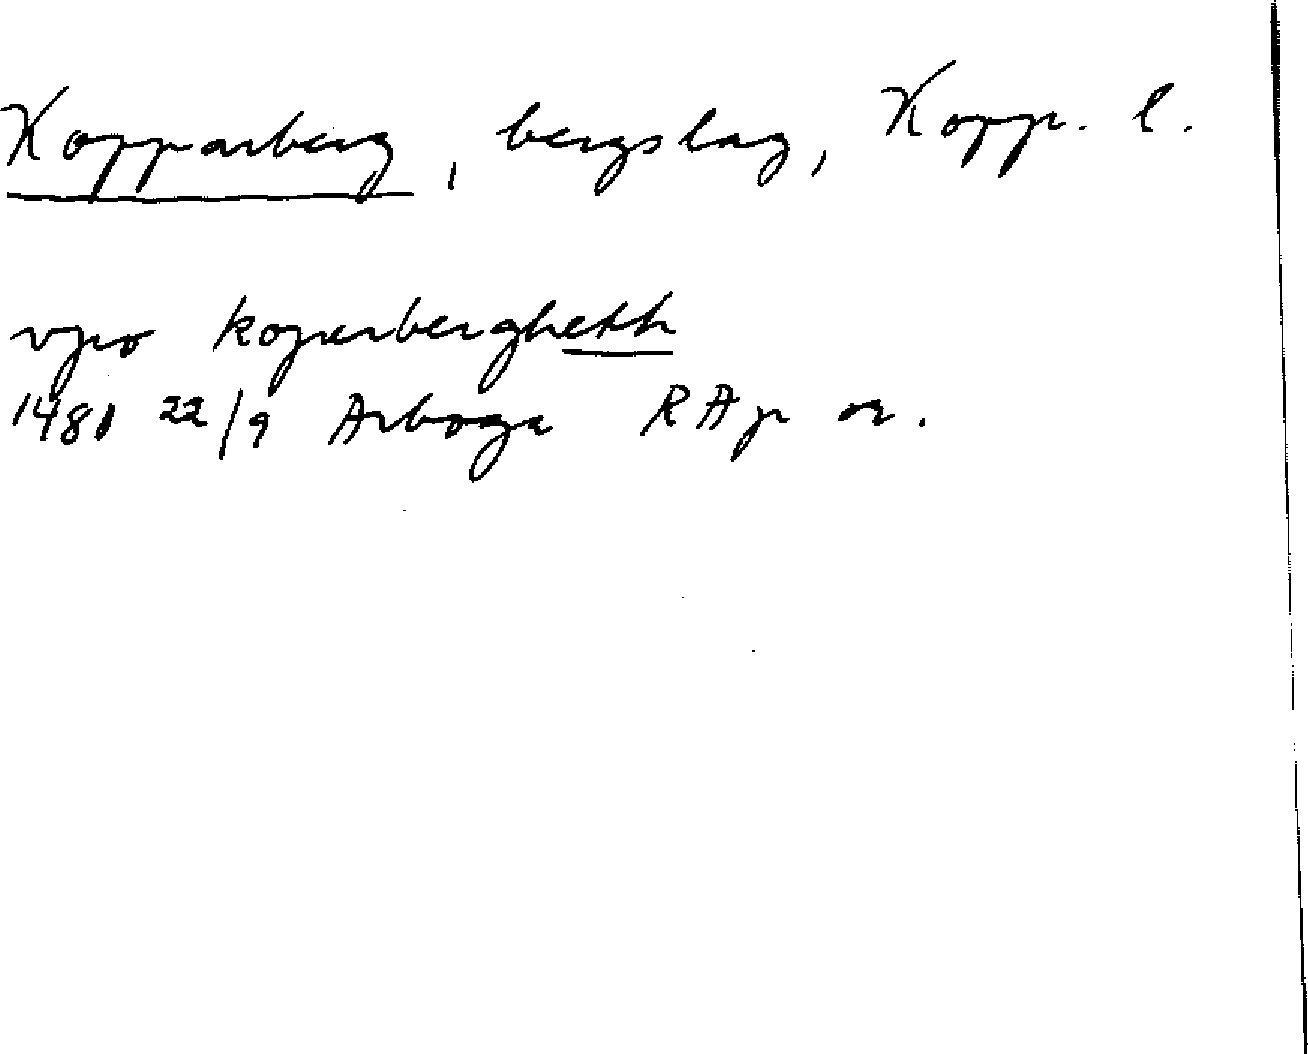 Kopparberg, bergslag, Kopp. l.
vpo koperbergheth
1481 22/9 Arboga RAp or.